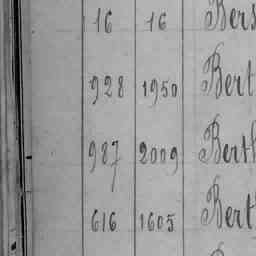 16 16 Bers
928 1950 Bert
987 2009 Berth
616 1605 Bert